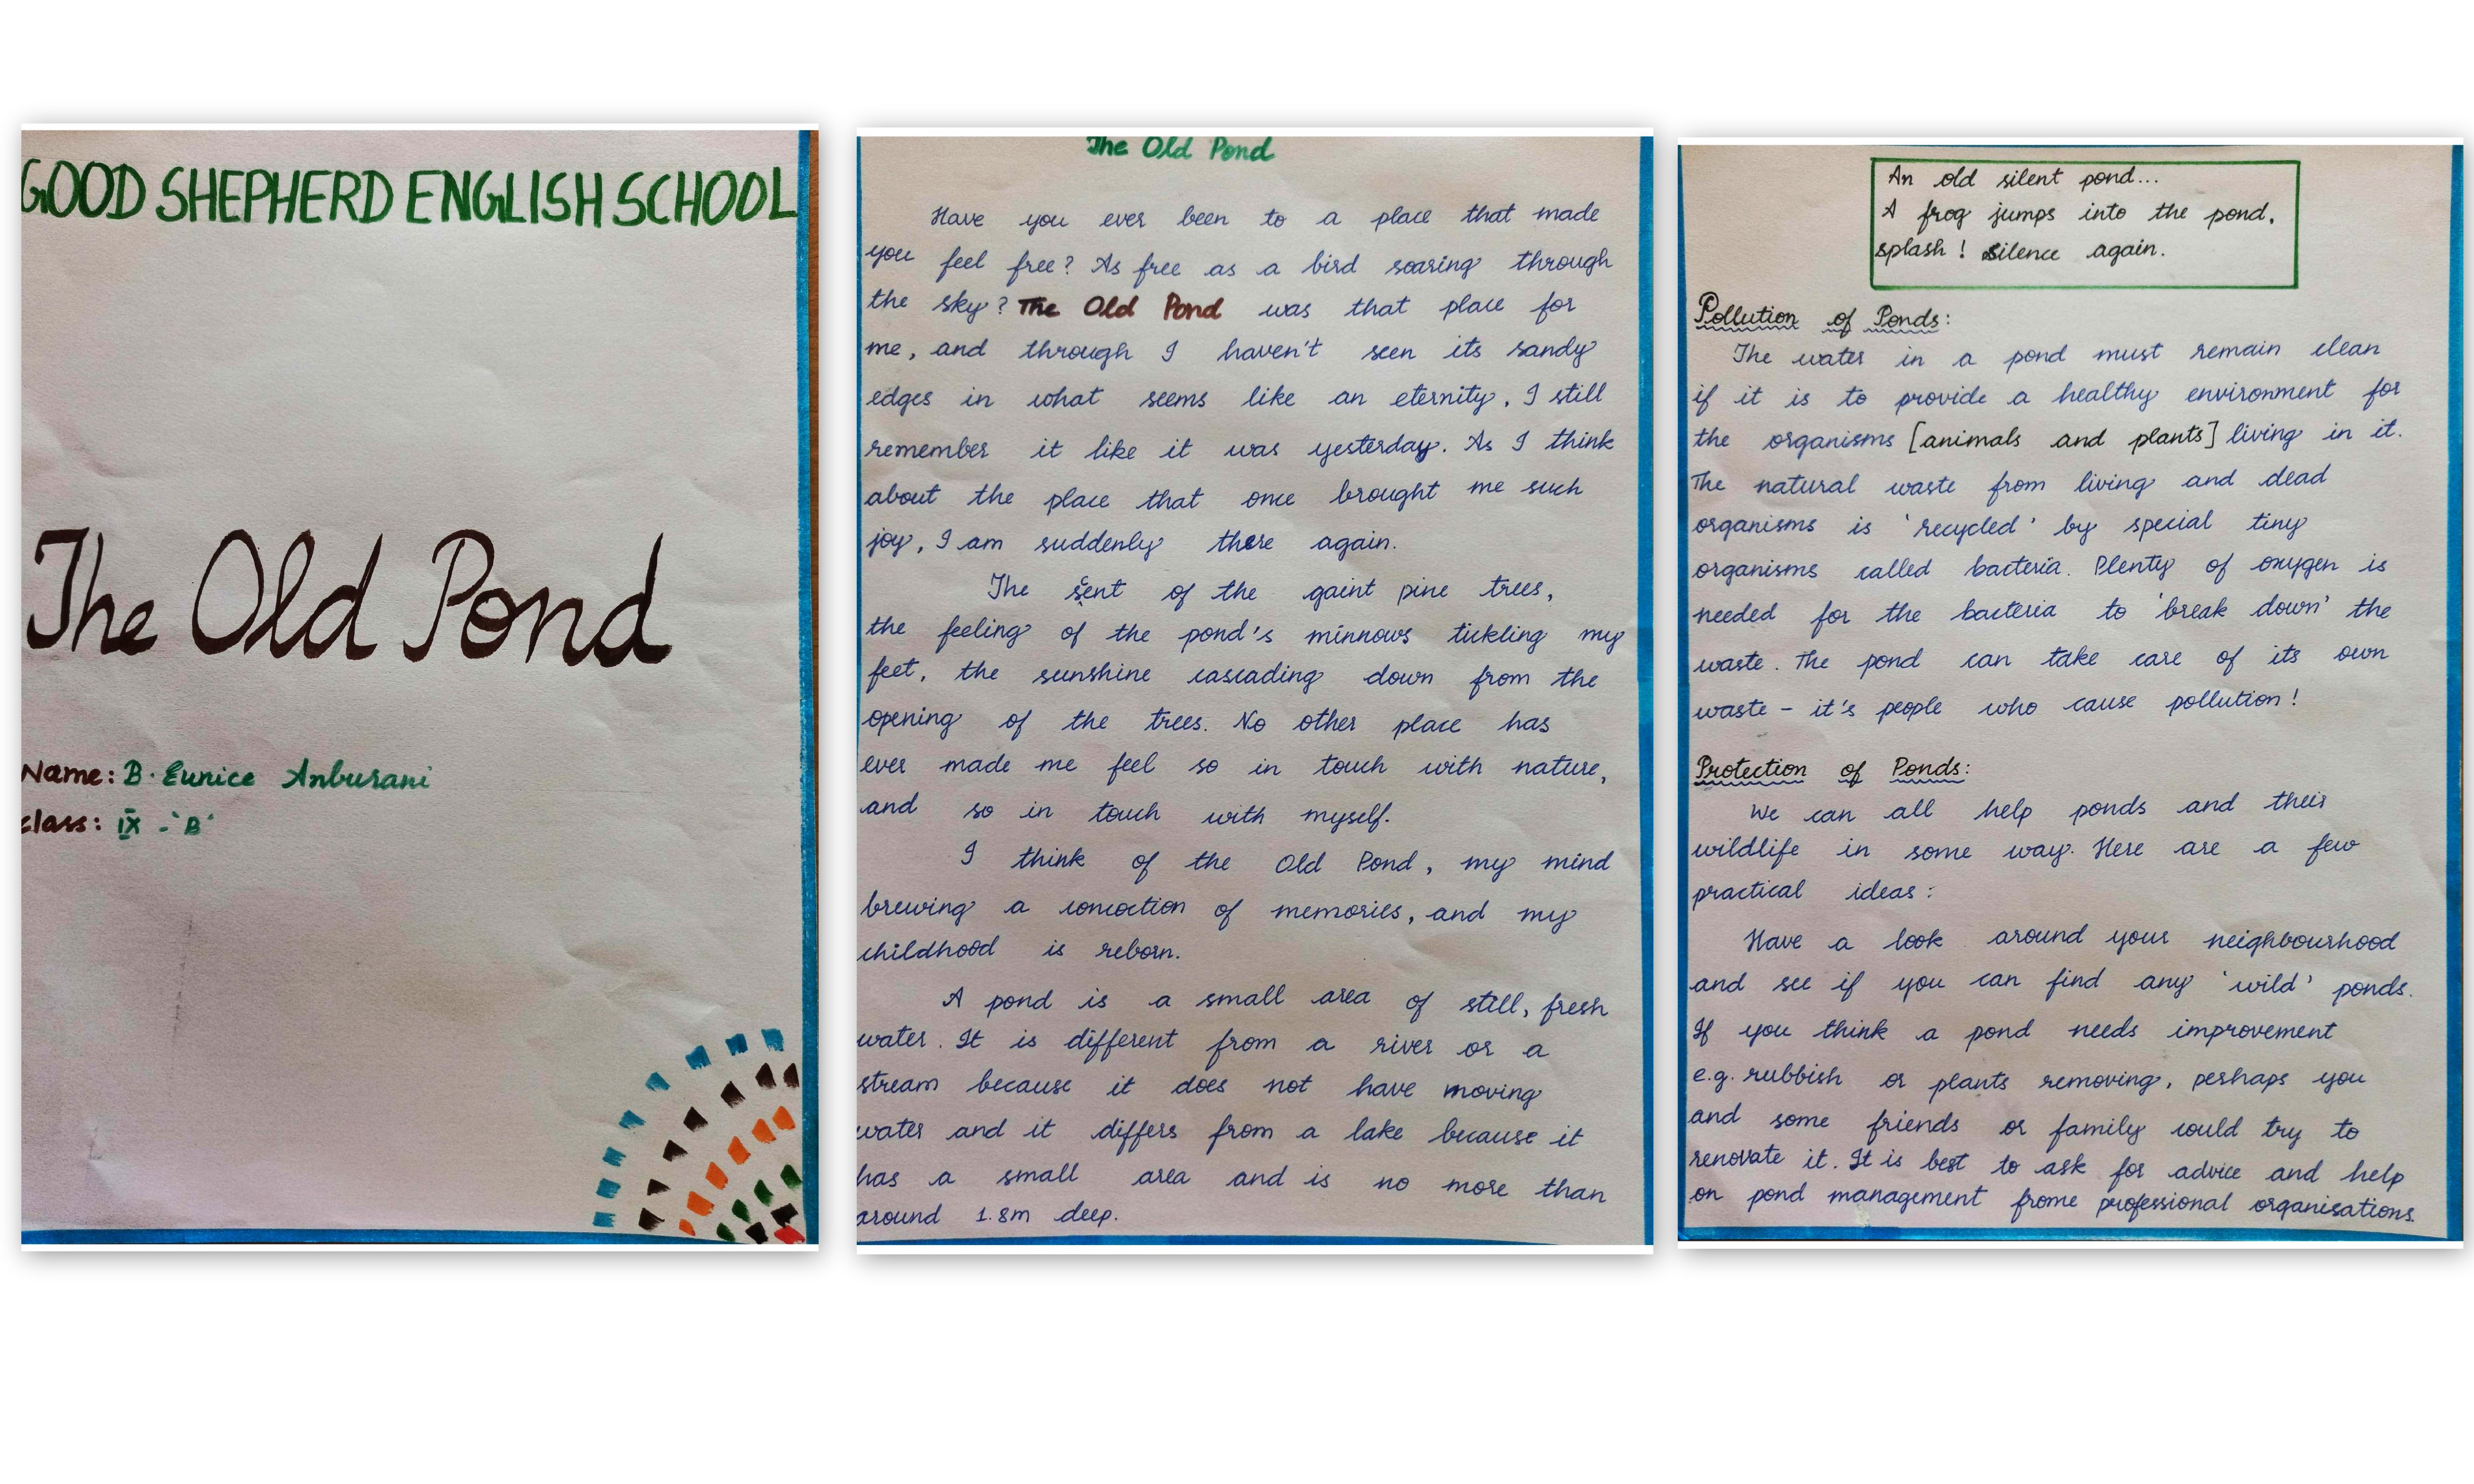 GOOD SHEPHERD ENGLISH SCHOOL
The Old Pond
Name: B. Eunice Anburani
Class: IX - 'B'
The Old Pond
Have you ever been to a place that made
you feel free? As free as a bird soaring through
the sky? The Old Pond was that place for
me, and through I haven't seen its sandy
edges in what seems like an eternity, I still
remember it like it was yesterday. As I think
about the place that once brought me such
joy, I am suddenly there again.
The scent of the gaint pine trees,
the feeling of the pond's minnows tickling my
feet, the sunshine cascading down from the
opening of the trees. No other place has
ever made me feel so in touch with nature,
and so in touch with myself.
I think of the Old Pond, my mind
brewing a concoction of memories, and my
childhood is reborn.
A pond is a small area of still, fresh
water. It is different from a river or a
stream because it does not have moving
water and it differs from a lake because it
has a small area and is no more than
around 1.8m deep.
An old silent pond...
A frog jumps into the pond,
splash! Silence again.
Pollution of Ponds:
The water in a pond must remain clean
if it is to provide a healthy environment for
the organisms [animals and plants] living in it.
The natural waste from living and dead
organisms is 'recycled' by special tiny
organisms called bacteria. Plenty of oxygen is
needed for the bacteria to 'break down' the
waste. The pond can take care of its own
waste - it's people who cause pollution!
Protection of Ponds:
We can all help ponds and their
wildlife in some way. Here are a few
practical ideas:
Have a look around your neighbourhood
and see if you can find any 'wild' ponds.
If you think a pond needs improvement
e.g. rubbish or plants removing, perhaps you
and some friends or family could try to
renovate it. It is best to ask for advice and help
on pond management frome professional organisations.